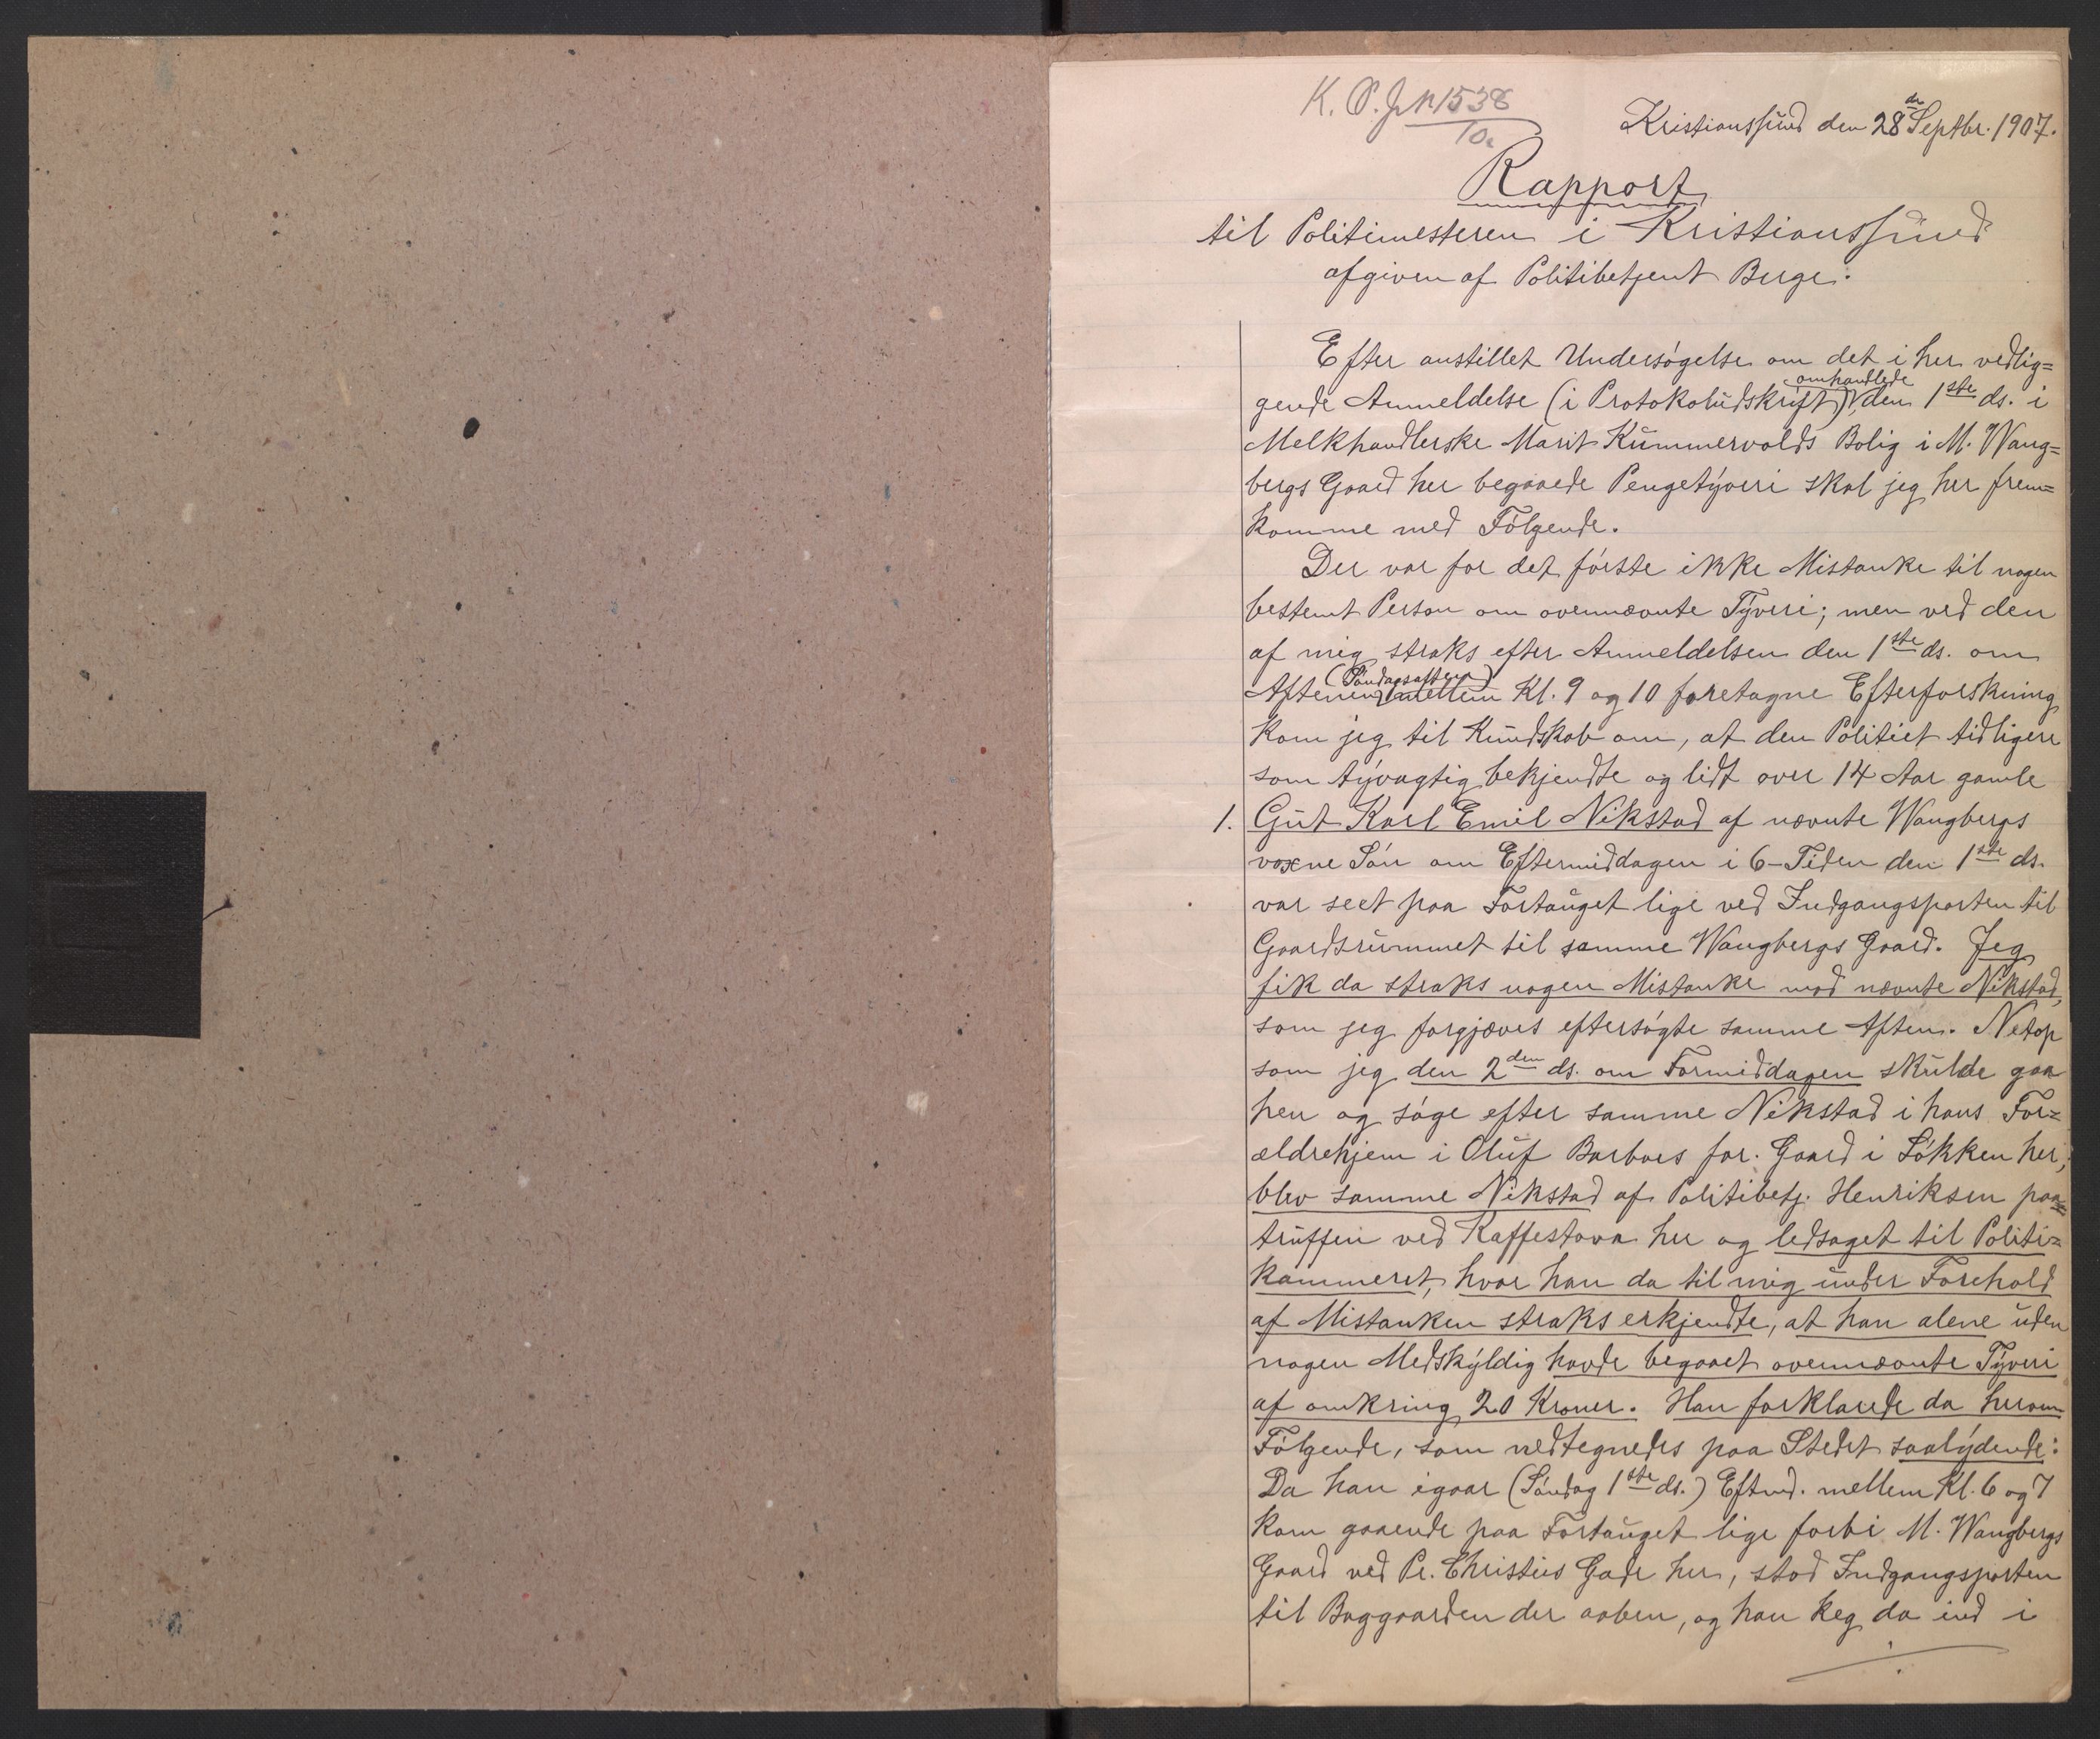 K. P. J. N 1538
10.
Kristianssund den 28de Septbr. 1907.
Rapport
til Politimesteren i Kristianssund
afgiven af Politibetjent Berge.
Efter anstillet Undersøgelse om det i her vedlig=
gende Anmeldelse (i Protokoludskrift) omhandlede den 1ste ds. i
Melkhandlerske Marit Kummervolds Bolig i M. Wang=
bergs Gaard her begaaede Pengetyveri skal jeg her frem=
komme med Følgende.
Der var for det første ikke Mistanke til nogen
bestemt Person om ovennævnte Tyveri; men ved den
af mig straks efter Anmeldelsen den 1ste ds. om
Aftenen (Søndagsaften) mellem Kl. 9 og 10 foretagne Efterforskning
kom jeg til Kundskab om, at den Politiet tidligere
som tyvagtig bekjendte og lidt over 14 Aar gamle
1. Gut Karl Emil Nikstad af nævnte Wangbergs
voxne Søn om Eftermiddagen i 6-Tiden den 1ste ds.
var seet paa Fortauget lige ved Indgangsporten til
Gaardsrummet til samme Wangbergs Gaard. Jeg
fik da straks nogen Mistanke mod nævnte Nikstad,
som jeg forgjæves eftersøgte samme Aften. Netop
som jeg den 2den ds. om Formiddagen skulde gaa
hen og søge efter samme Nikstad i hans For=
ældrehjem i Oluf Barboes for. Gaard i Løkken her,
blev samme Nikstad af Politibetj. Henriksen paa=
truffen ved Kaffestova her og ledsaget til Politi=
kammeret, hvor han da til mig under Forehold
af Mistanken straks erkjendte, at han alene uden
nogen Medskyldig havde begaaet ovennævnte Tyveri
af omkring 20 Kroner. Han forklarede da herom
Følgende, som nedtegnedes paa Stedet saalydende:
Da han igaar (Søndag 1ste ds.) Eftmd. mellem Kl. 6 og 7
kom gaaende paa Fortauget lige forbi M. Wangbergs
Gaard ved Pr. Christies Gade her, stod Indgangsporten
til Baggaarden der aaben, og han keg da ind i